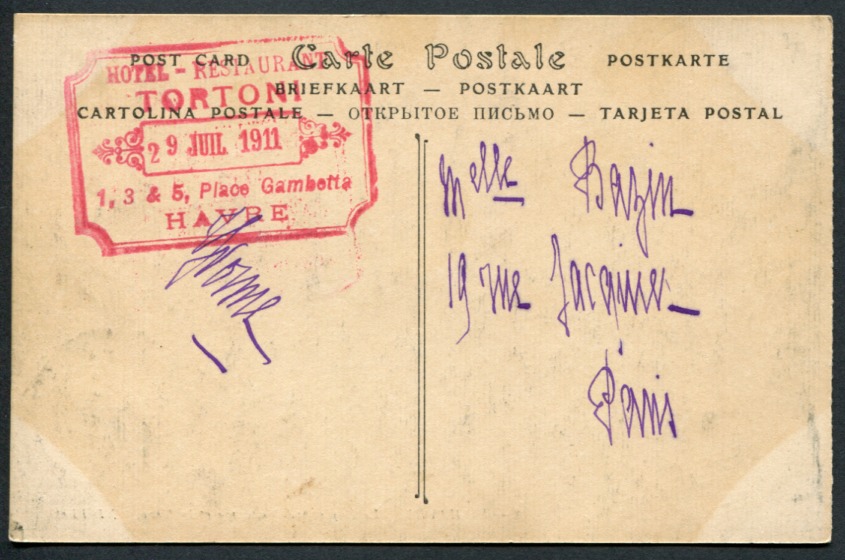 POST CARD Carte Postale POSTKARTE
BRIEFKAART — POSTKAART
CARTOLINA POSTALE — ОТКРЫТОЕ ПИСЬМО — TARJETA POSTAL
HOTEL - RESTAURANT
TORTONI
29 JUIL 1911
1, 3 & 5, Place Gambetta
HAVRE
Yvonne
Melle Bazin
19 rue Jacquier
Paris